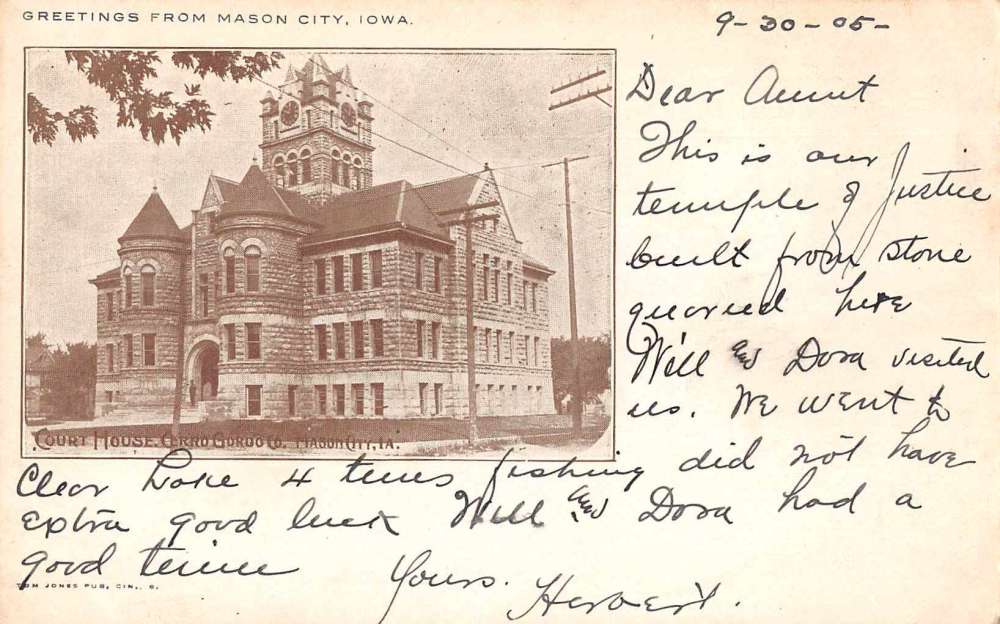 GREETINGS FROM MASON CITY, IOWA.
9-30-05-
Dear Aunt
This is our
temple of Justice
built from stone
quarried here
Will and Dora visited
us. We went to
COURT HOUSE, CERRO GORDO CO. MASON CITY, IA.
Clear Lake 4 times fishing did not have
extra good luck Will and Dora had a
good time
Yours.
Herbert.
TOM JONES PUB, CIN., O.